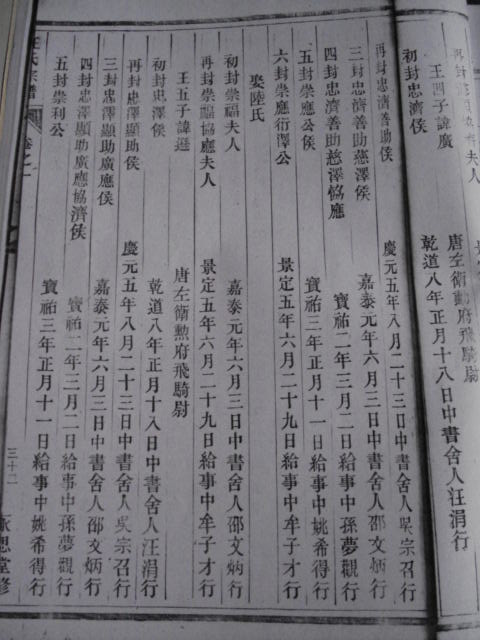 夫人
王四子諱廣
唐左衛勳府飛騎尉
初封忠濟侯
乾道八年正月十八日中書舍人汪涓行
再封忠濟善助侯
慶元五年八月二十三日中書舍人吳宗召行
三封忠濟善助慈澤侯
嘉泰元年六月三日中書舍人邵文炳行
四封忠濟善助慈澤協應
寶祐二年三月二日給事中孫夢觀行
五封崇應公侯
寶祐三年正月十一日給事中姚希得行
六封崇應衍澤公
景定五年六月二十九日給事中牟子才行
娶陸氏
初封崇福夫人
嘉泰元年六月三日中書舍人邵文炳行
再封崇福協應夫人
景定五年六月二十九日給事中牟子才行
王五子諱遜
唐左衛勳府飛騎尉
初封忠澤侯
乾道八年正月十八日中書舍人汪涓行
再封忠澤顯助侯
慶元五年八月二十三日中書舍人吳宗召行
三封忠澤顯助廣應侯
嘉泰元年六月三日中書舍人邵文炳行
四封忠澤顯助廣應協濟侯
寶祐二年三月二日給事中孫夢觀行
五封崇利公
寶祐三年正月十一日給事中姚希得行
汪氏宗譜
卷之一
三十二
思堂修